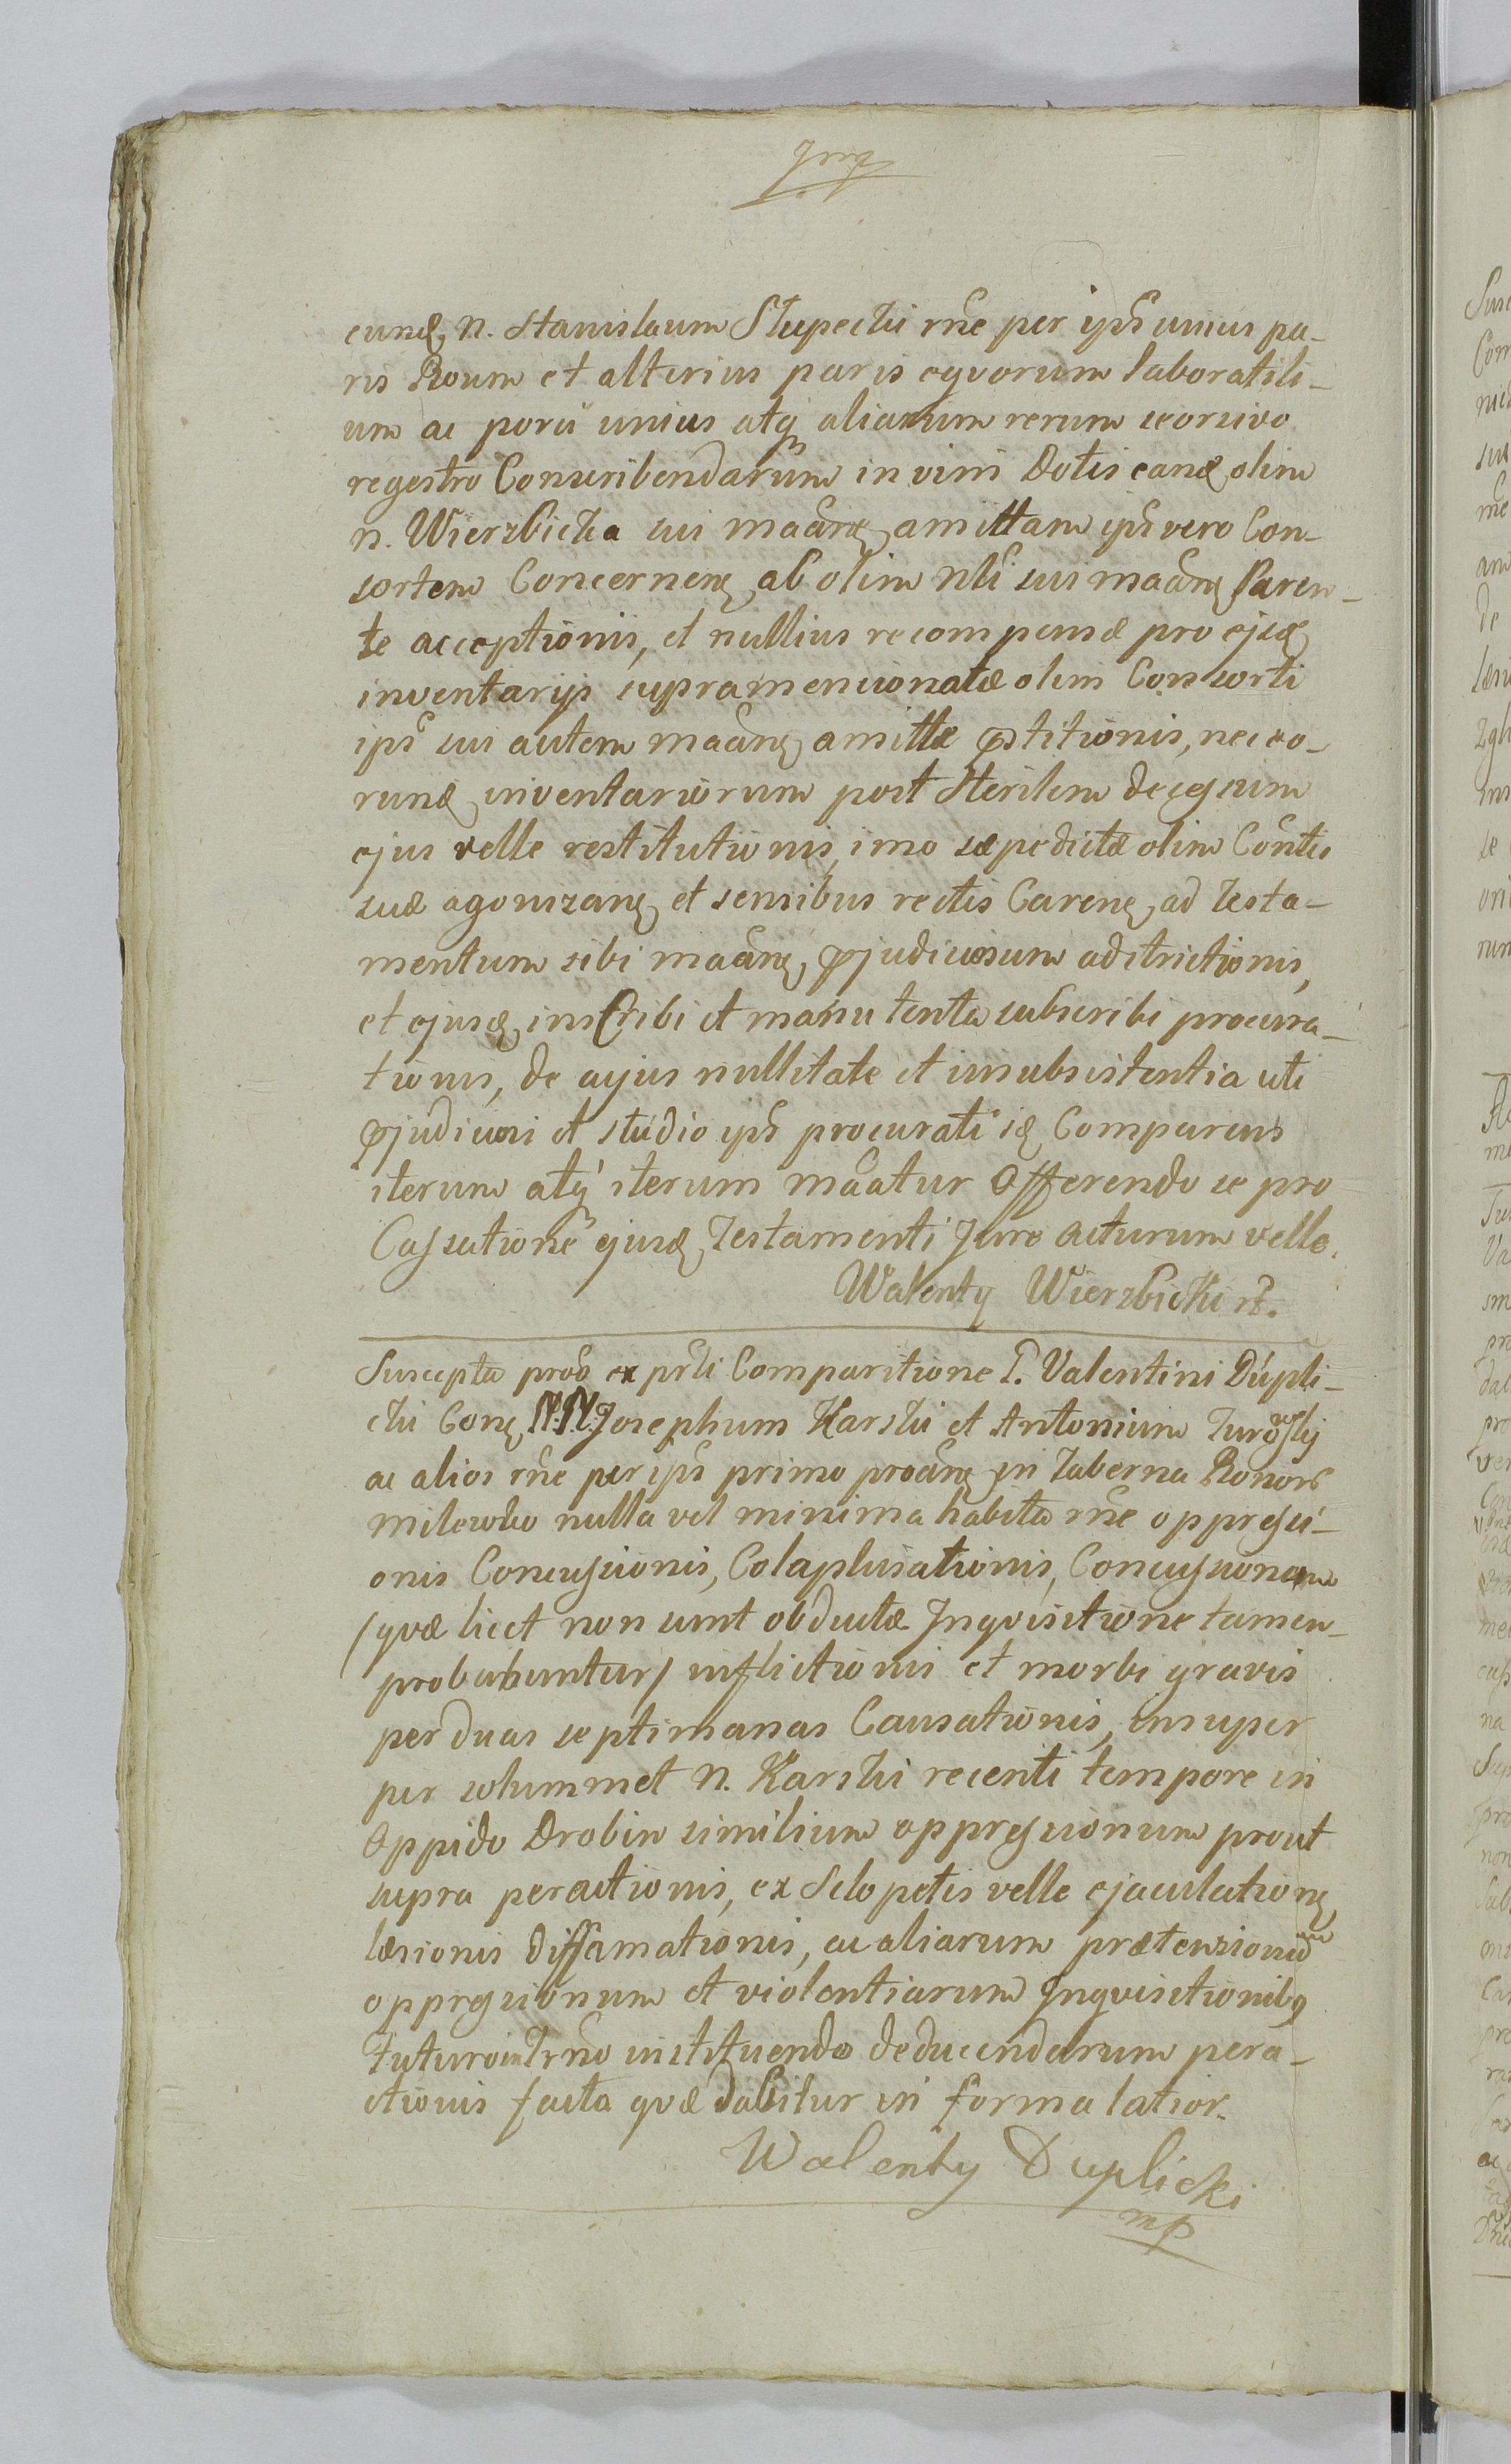 eund. N. Stanislaum Słupecki rne per ips unius pa-
ris Boum et alterius paris eqvorum laboratili-
um ac porci unius atq aliarum rerum seorsivo
regestro Conscribendarum in vim Dotis eand. olim
N. Wierzbicka sui maańs amittam ips vero Con-
sortem Concernen. ab olim nłi sui maańs Paren-
te acceptionis, et nullius recompensæ pro ejsd.
inventarijs supramencionatæ olim Consorti
ips sui autem maańs amittæ pstitionis, nec eo-
rund. inventariorum post sterilem decessum
ejus velle restitutionis, imo sæpedictæ olim Contis
suæ agonizan. et sensibus rectis Caren. ad testa-
mentum sibi maańs pjudiciosum adstrictionis,
et ejusd. inscribi et manu tenta subscribi procura-
tionis, de cujus nullitate et insubsistentia uti
pjudiciosi et studio ips procurati id. Comparens
iterum atq iterum maatur Offerendo se pro
Cassatione ejusd. Testamenti Jure acturum velle.
Walenty Wierzbicki
Suscepta pros ex prłi Comparitione Valentini Dupli-
cki Con. N.N. Josephum Karski et Antonium
ac alios rne per ips primo proańs in Taberna Bonor
Milewko nulla vel minima habita rne oppressi-
onis Concussionis, Colaphisationis, Concussionum
/qvæ licet non sunt obductæ Inqvisitione tamen
probabuntur/ inflictionis et morbi gravis
per duas septimanas Causationis, insuper
per solummet N. Karski recenti tempore in
Oppido Drobin similium oppressionum prout
supra peractionis, ex Sclopetis velle ejaculation.
læsionis Diffamationis, ac aliarum prætensionum
oppressionum et violentiarum Inqvisitionibq
futuro in Trno instituendo deducendarum pera-
ctionis facta qvæ dabitur in forma latior.
Walenty Duplicki
mp